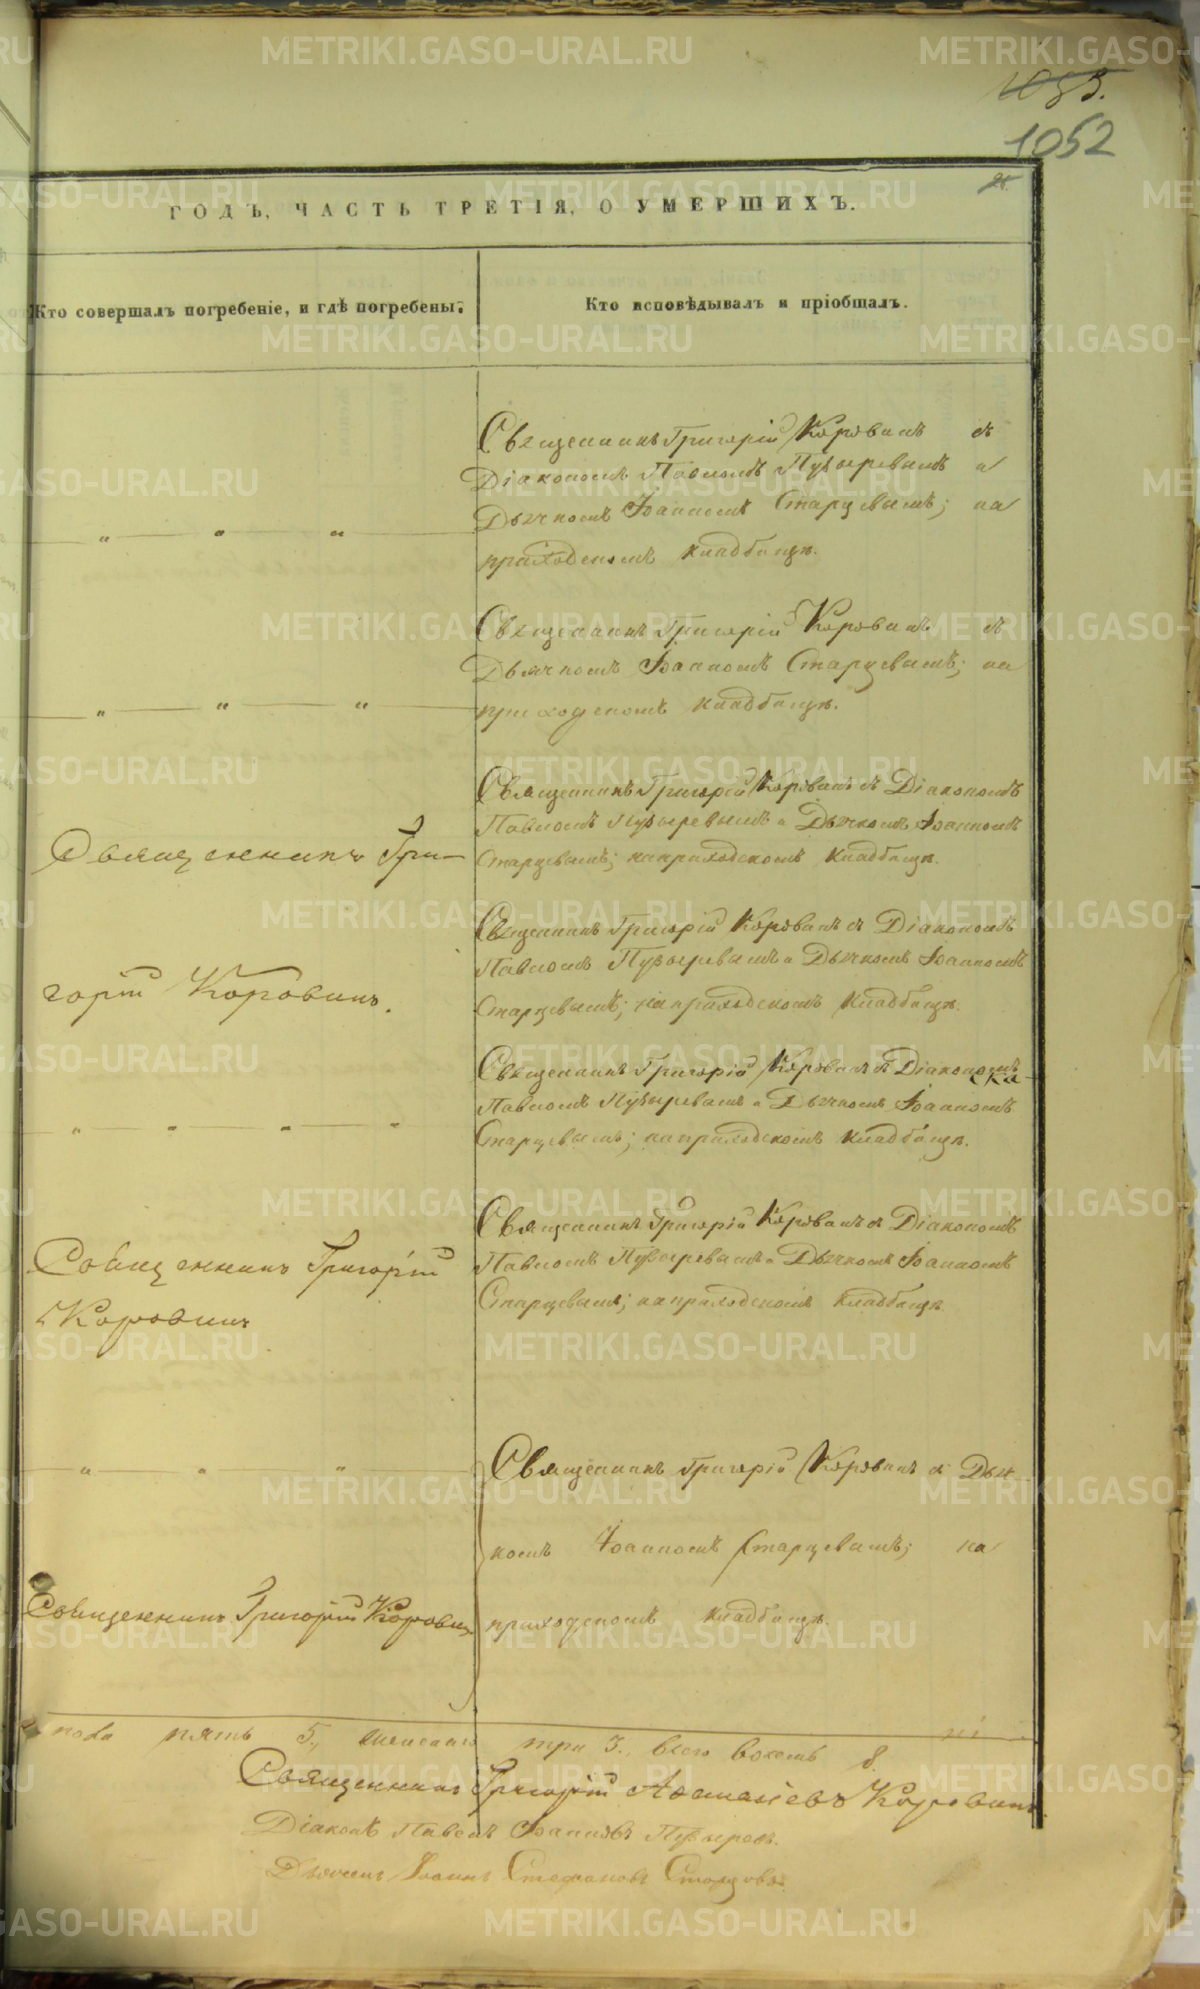 1052
ГОДЪ, ЧАСТЬ ТРЕТІЯ, О УМЕРШИХЪ.
Кто совершалъ погребеніе, и гдѣ погребены.
Кто исповѣдывалъ и пріобщалъ.
Священникъ Григорій Коровинъ съ
Діакономъ Павломъ Пузыревымъ и
Дьячкомъ Іоанномъ Старцевымъ; на
приходскомъ кладбищѣ.
Священникъ Григорій Коровинъ съ
Дьячкомъ Іоанномъ Старцевымъ; на
приходскомъ кладбищѣ.
Священникъ Григорій Коровинъ съ Діакономъ
Павломъ Пузыревымъ и Дьячкомъ Іоанномъ
Старцевымъ; на приходскомъ кладбищѣ.
Священникъ Гри-
Священникъ Григорій Коровинъ съ Діакономъ
Павломъ Пузыревымъ и Дьячкомъ Іоанномъ
Старцевымъ; на приходскомъ кладбищѣ.
горій Коровинъ.
Священникъ Григорій Коровинъ съ Діакономъ
Павломъ Пузыревымъ и Дьячкомъ Іоанномъ
Старцевымъ; на приходскомъ кладбищѣ.
Священникъ Григорій Коровинъ съ Діакономъ
Павломъ Пузыревымъ и Дьячкомъ Іоанномъ
Старцевымъ; на приходскомъ кладбищѣ
Священникъ Григорій
Коровинъ
Священникъ Григорій Коровинъ съ Дьяч
комъ Іоанномъ Старцевымъ; на
приходскомъ кладбищѣ.
Священникъ Григорій Коровинъ
пола пять 5., женскаго три 3., всего восемь 8.
Священникъ Григорій Аѳанасіевъ Коровинъ.
Діаконъ Павелъ Іоанновъ Пузыревъ.
Дьячекъ Іоаннъ Стефановъ Старцовъ.
METRIKI.GASO-URAL.RU